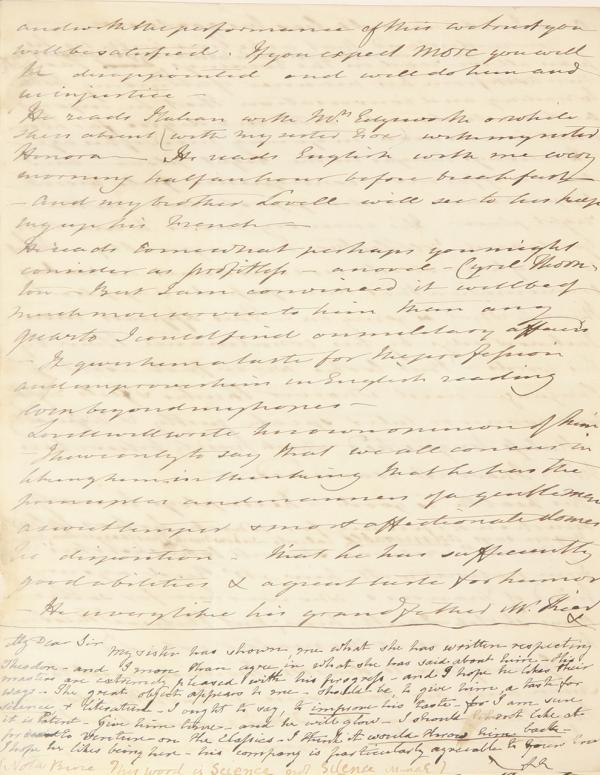 and with the performance of this contract you
will be satisfied. If you expect more you will
be disappointed and will do him and
us injustice –
He reads Italian with Mrs. Edgeworth or while
she is absent (with my sister Fox) with my sister
Honora – He reads English with me every
morning half an hour before breakfast –
– and my brother Lovell will see to his keep
ing up his French –
He reads somewhat perhaps you might
consider as profitless – a novel – Cyril Thorn-
ton – But I am convinced it will be of
much more service to him than any
quarto I could find on military affairs
– It gives him a taste for the profession
and improves him in English reading
even beyond my hopes –
Lovell will write his own opinion of him
– I have only to say that we all concur in
liking him in thinking that he has the
principles and manners of a gentleman
a sweet temper & most affectionate domes
tic disposition – that he has sufficiently
good abilities & a great taste for humor
– He is very like his grandfather Mr.
My Dear Sir
my sister has shown me what she has written respecting
Theodore – and I more than agree in what she has said about him – His
masters are extremely pleased with his progress – and I hope he likes their
ways – The great object appears to me – should be, to give him a taste for
science & literature – I ought to say, to improve his taste – for I am sure
it is latent – Give him time – and he will glow – I should not like at
present to venture on the Classics – I think it would throw him back –
I hope he likes being here – his company is particularly agreeable to
(Nota Bene This word is Science not Silence